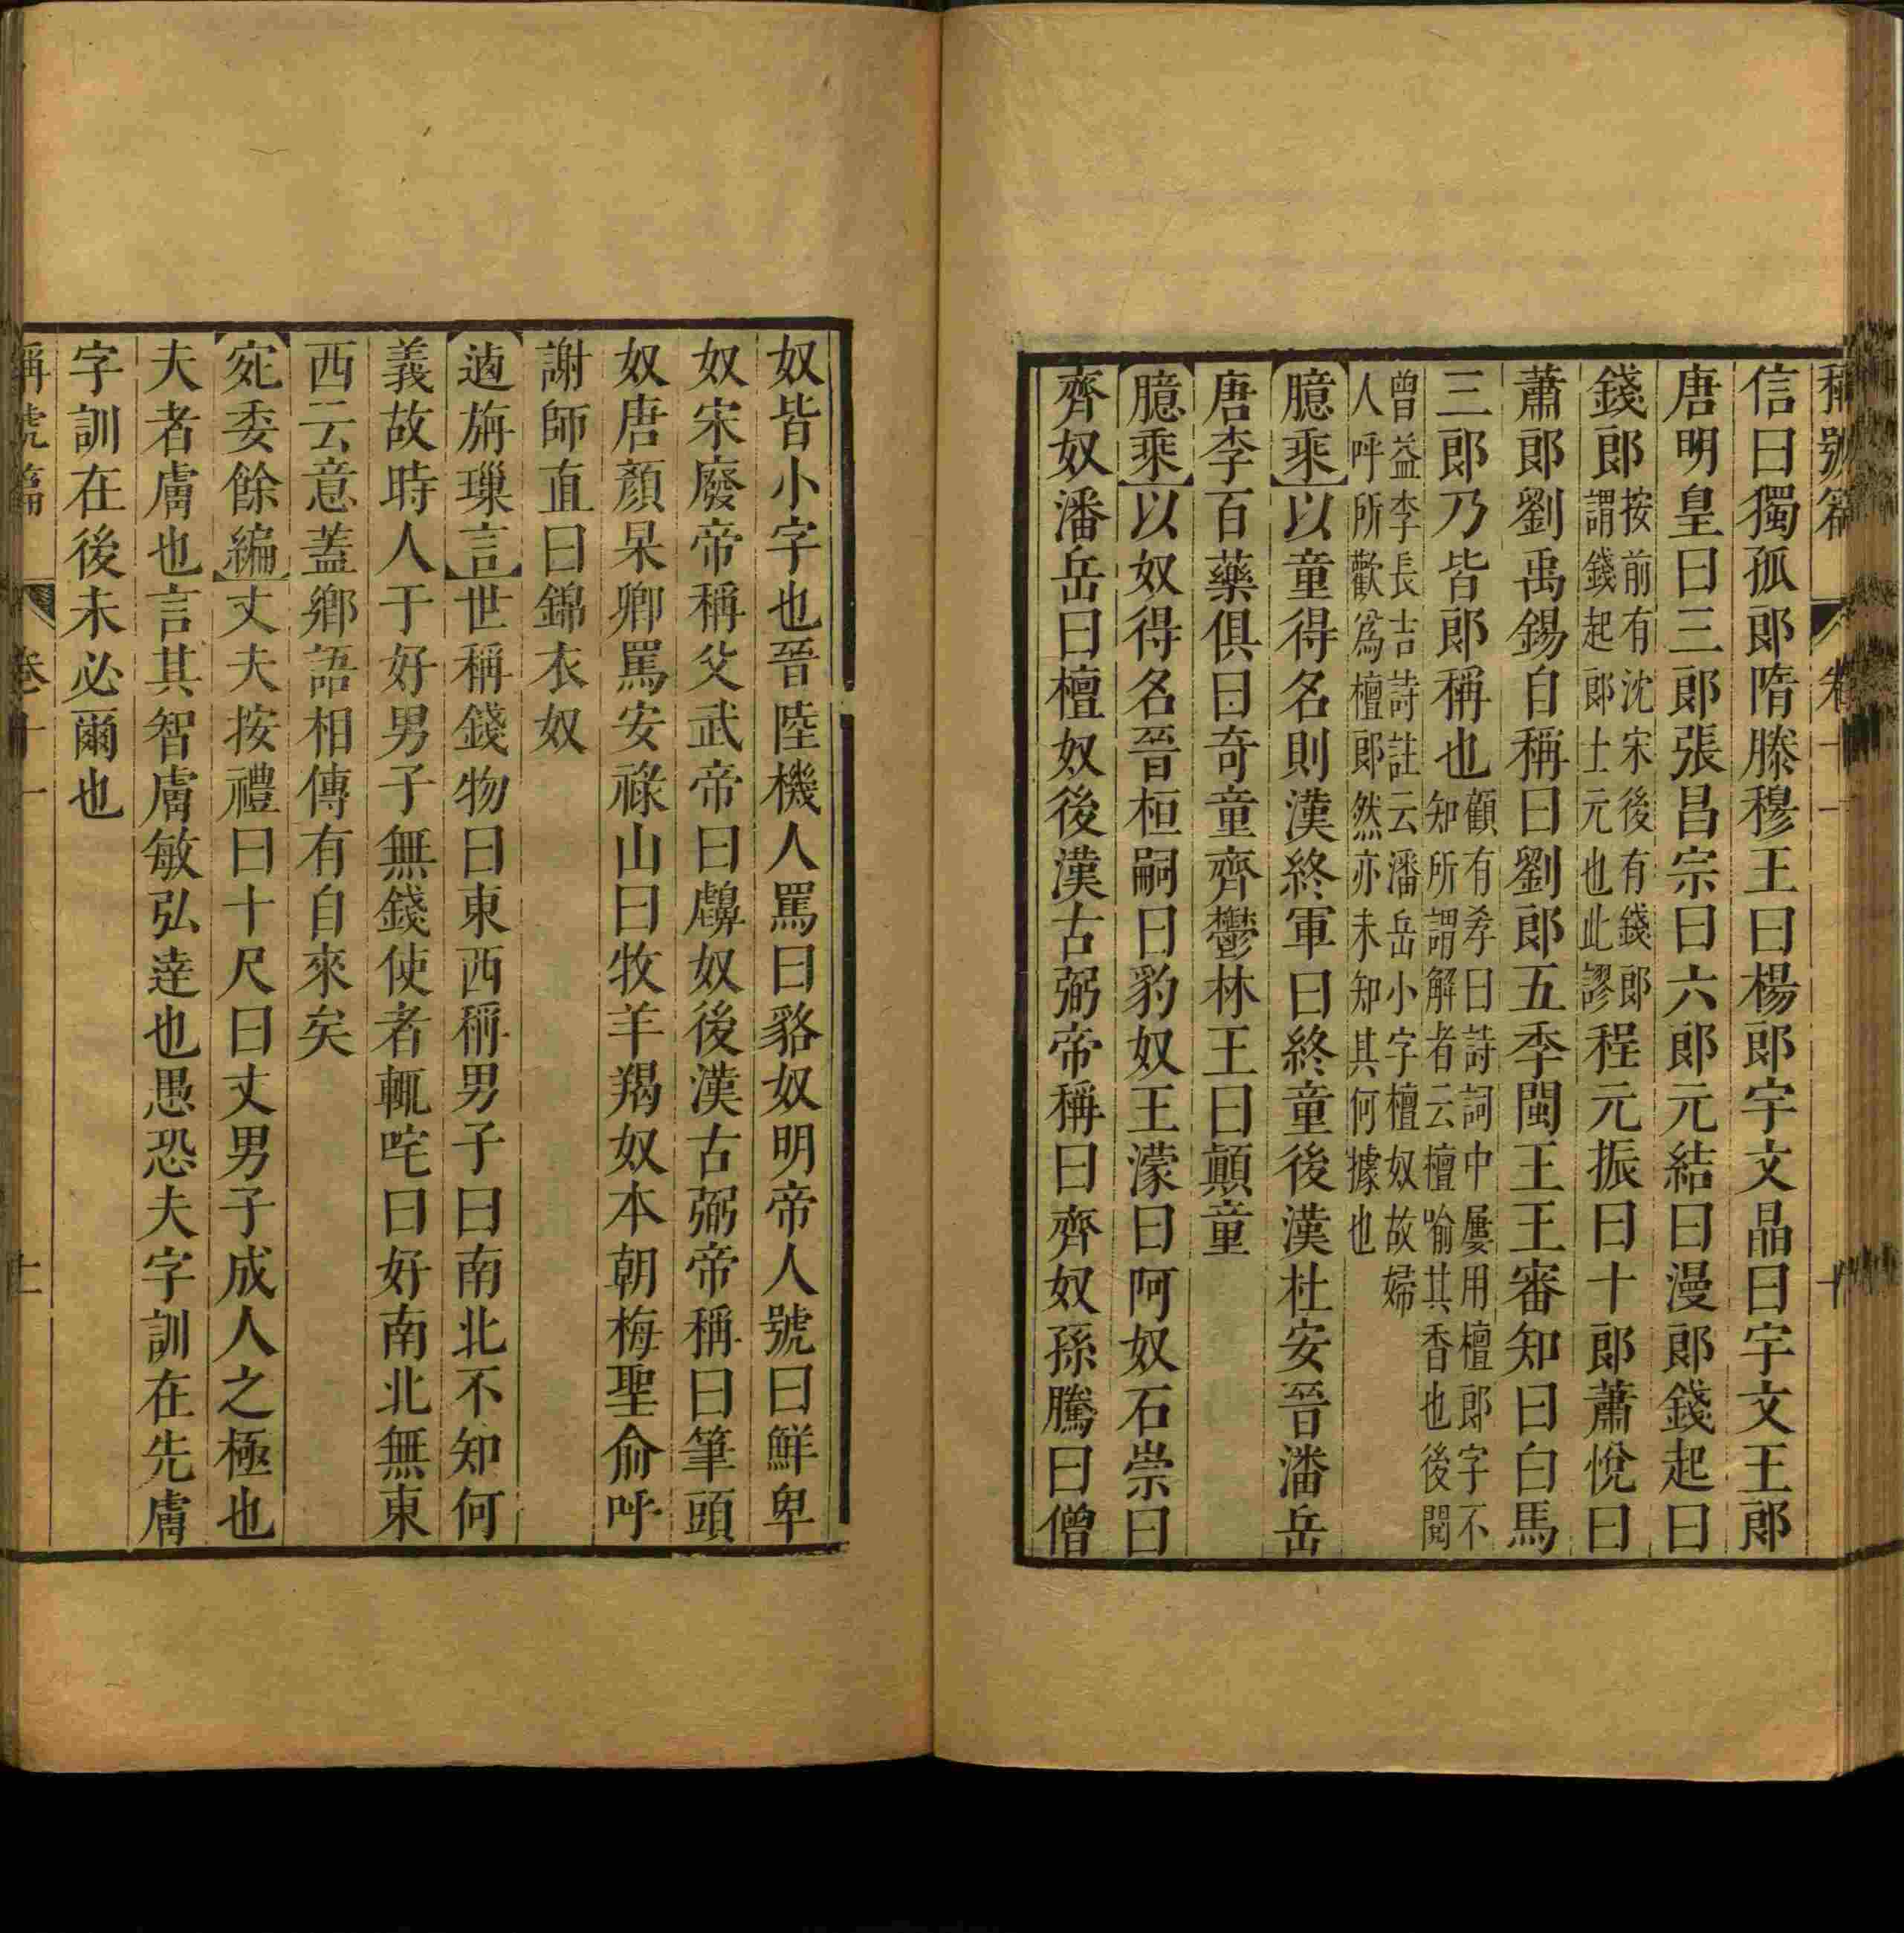 稱號篇 卷十一 十
信曰獨孤郎隋滕穆王曰楊郎宇文晶曰宇文王郎
唐明皇曰三郎張昌宗曰六郎元結曰漫郎錢起曰
錢郎
按前有沈宋後有錢郎
謂錢起郎士元也此謬
程元振曰十郎蕭悅曰
蕭郎劉禹錫自稱曰劉郎五季閩王王審知曰白馬
三郎乃皆郎稱也
顧有孝曰詩詞中屢用檀郎字不
知所謂解者云檀喻其香也後閱
曾益李長吉詩註云潘岳小字檀奴故婦
人呼所歡為檀郎然亦未知其何據也
【臆乘】以童得名則漢終軍曰終童後漢杜安晉潘岳
唐李百藥俱曰奇童齊鬱林王曰顛童
【臆乘】以奴得名晉桓嗣曰豹奴王濛曰阿奴石崇曰
齊奴潘岳曰檀奴後漢古弼帝稱曰齊奴孫騰曰僧
奴皆小字也晉陸機人罵曰貉奴明帝人號曰鮮卑
奴宋廢帝稱父武帝曰齇奴後漢古弼帝稱曰筆頭
奴唐顏杲卿罵安祿山曰牧羊羯奴本朝梅聖俞呼
謝師直曰錦衣奴
【逌旃璅言】世稱錢物曰東西稱男子曰南北不知何
義故時人于好男子無錢使者輒咤曰好南北無東
西云意蓋鄉語相傳有自來矣
【宛委餘編】丈夫按禮曰十尺曰丈男子成人之極也
夫者膚也言其智膚敏弘達也愚恐夫字訓在先膚
字訓在後未必爾也
稱號篇 卷十一 十一